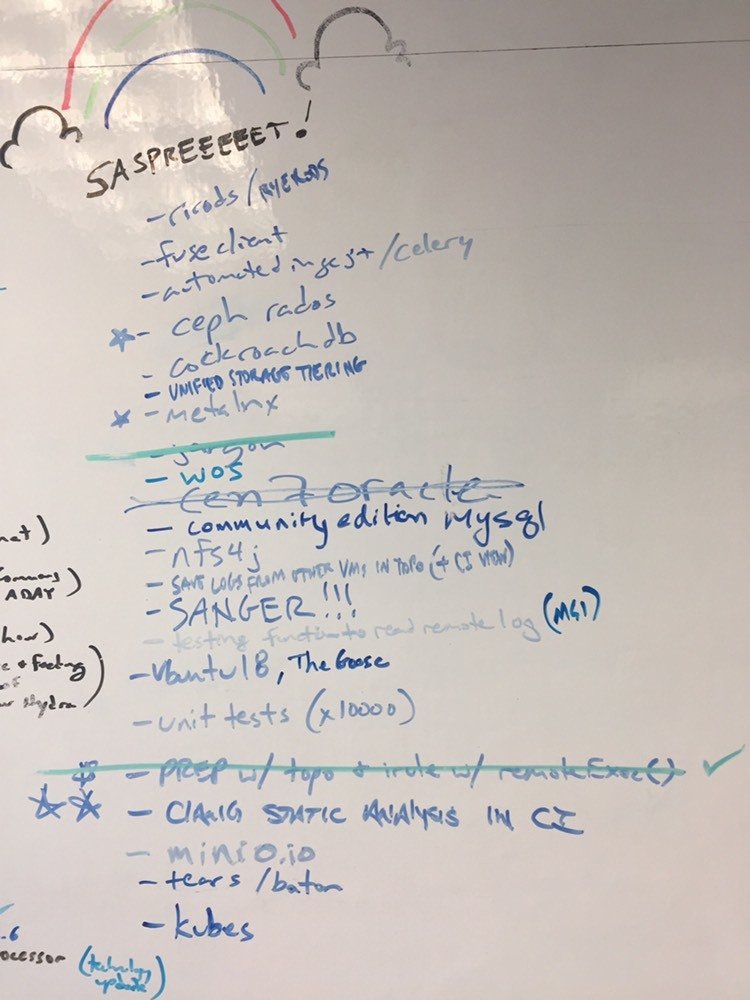 SASPREEEEET!
- ricods / RYERODS
- fuse client
- automated ingest /celery
- ceph rados
- cockroachdb
- UNIFIED STORAGE TIERING
- metalnx
- jargon
- WOS
- Cen7 oracle
- community edition Mysql
- nfs4j
- SAVE LOGS FROM OTHER VMS IN TOPO (+ CI VIEW)
- SANGER!!!
- testing function to read remote log (MGI)
- Ubuntu18, The Goose
- unit tests (x10000)
- PREP w/ topo & irule w/ remoteExec()
- ClANG STATIC ANALYSIS IN CI
- minio.io
- tears /baton
- kubes
ADAY)
Hydra
ocessor (technology update)